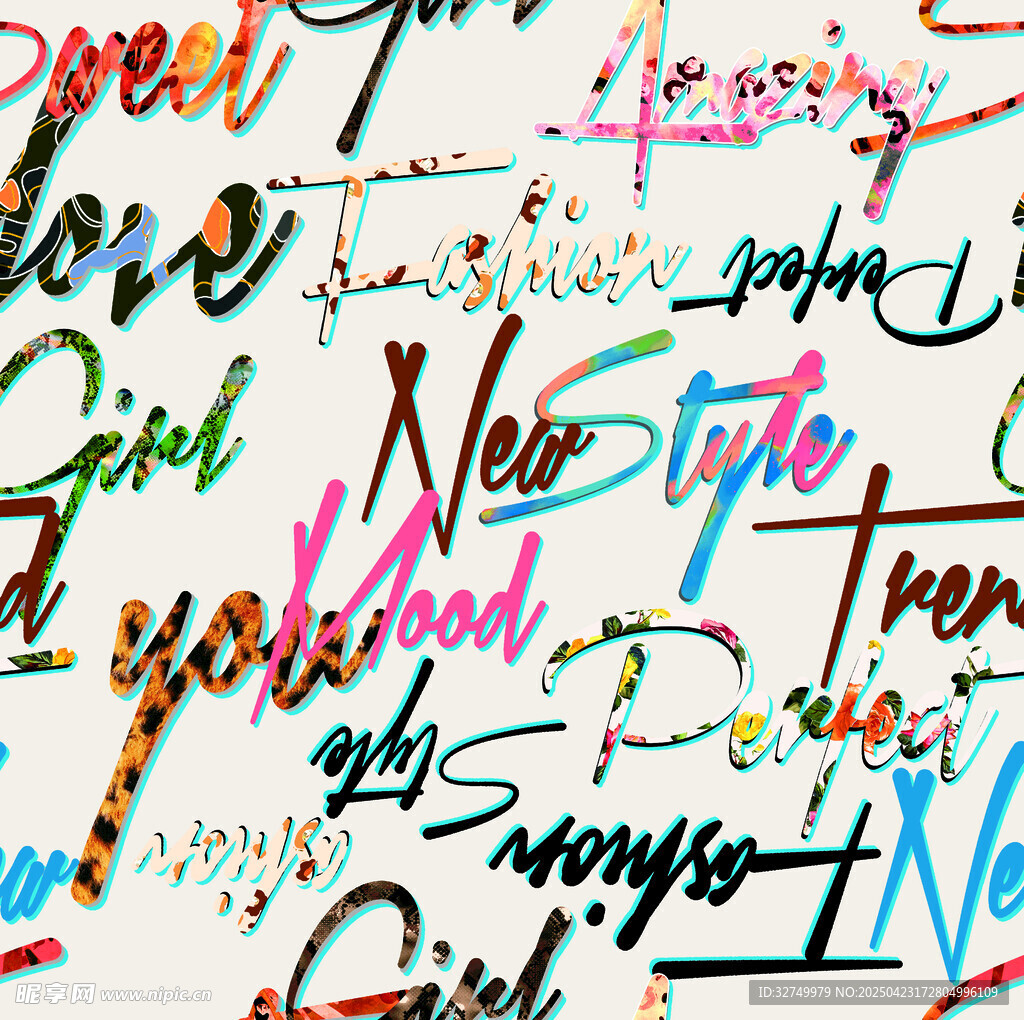 Sweet
Girl
Amazing
love
Fashion
Perfect
Girl
New
Style
Trend
you
Mood
Perfect
Style
ashion
Fashion
New
Girl
昵享网 www.nipic.cn
ID:32749979 NO:20250423172804996109